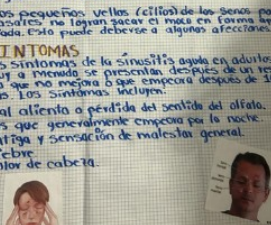 os pequeños vellos (cilios) de los senos pa
nasales no logran sacar el moco en forma ad
ada. Esto puede deberse a algunas afecciones
INTOMAS
s síntomas de la sinusitis aguda en adultos
uy a menudo se presentan después de un re
o que no mejora o que empeora después de
as. Los síntomas incluyen:
al aliento o pérdida del sentido del olfato.
s que generalmente empeora por la noche.
atiga y sensación de malestar general.
iebre
olor de cabeza.